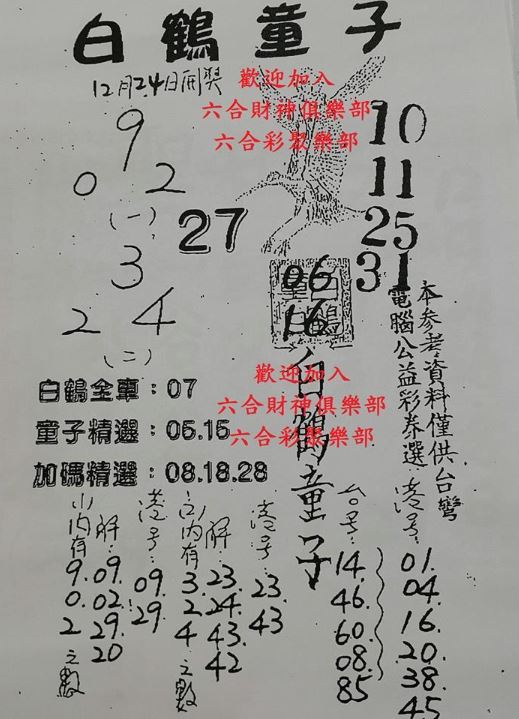 白鶴童子
12月24日開獎
歡迎加入
六合財神俱樂部
六合彩聚樂部
9
0 2
(一)
3
2 4
(二)
27
10
11
25
31
06
16
白鶴
童子
白鶴童子
本參考資料僅供台灣
電腦公益彩券選
歡迎加入
六合財神俱樂部
六合彩聚樂部
白鶴全車:07
童子精選:05.15
加碼精選:08.18.28
(一)內有
9.0.2之數
解:
09.
02.
29.
20
港号:
09.
29.
(二)內有
3.2.4之數
解:
23.
24.
43.
42
港号:
23.
43
台号:
14.
46.
60.
08.
85
港号:
01.
04.
16.
20.
38.
45